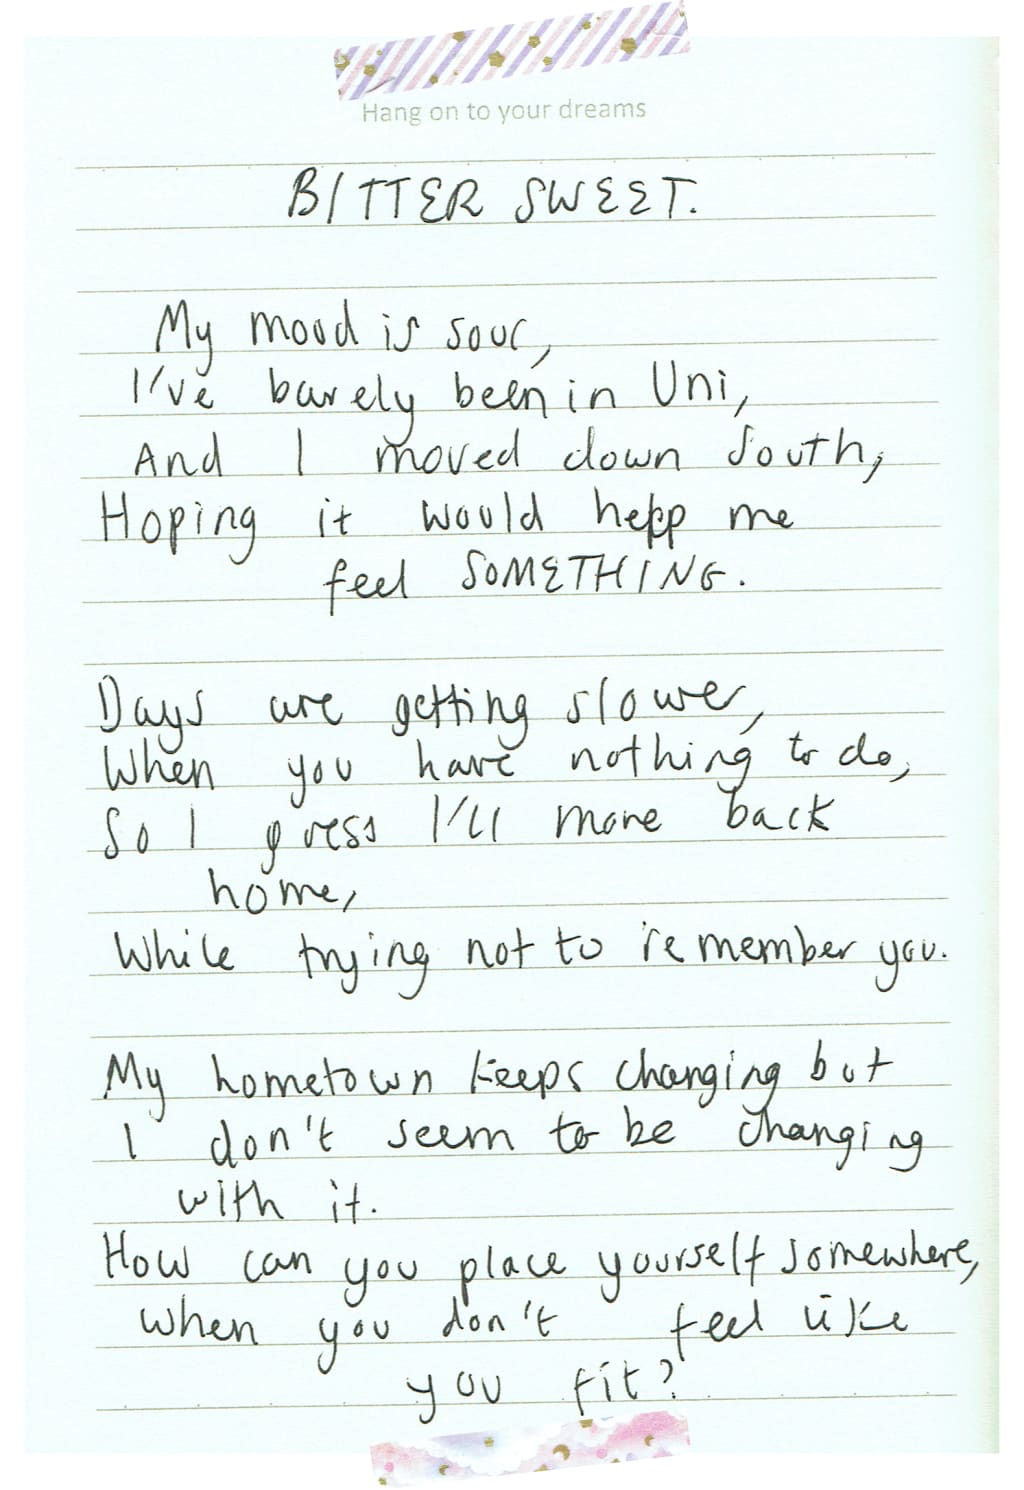 Hang on to your dreams
BITTER SWEET.
My mood is sour,
I've barely been in Uni,
And I moved down South,
Hoping it would help me
feel SOMETHING.
Days are getting slower,
When you have nothing to do,
So I guess I'll move back
home,
While trying not to remember you.
My hometown keeps changing but
I don't seem to be changing
with it.
How can you place yourself somewhere,
when you don't feel like
you fit?